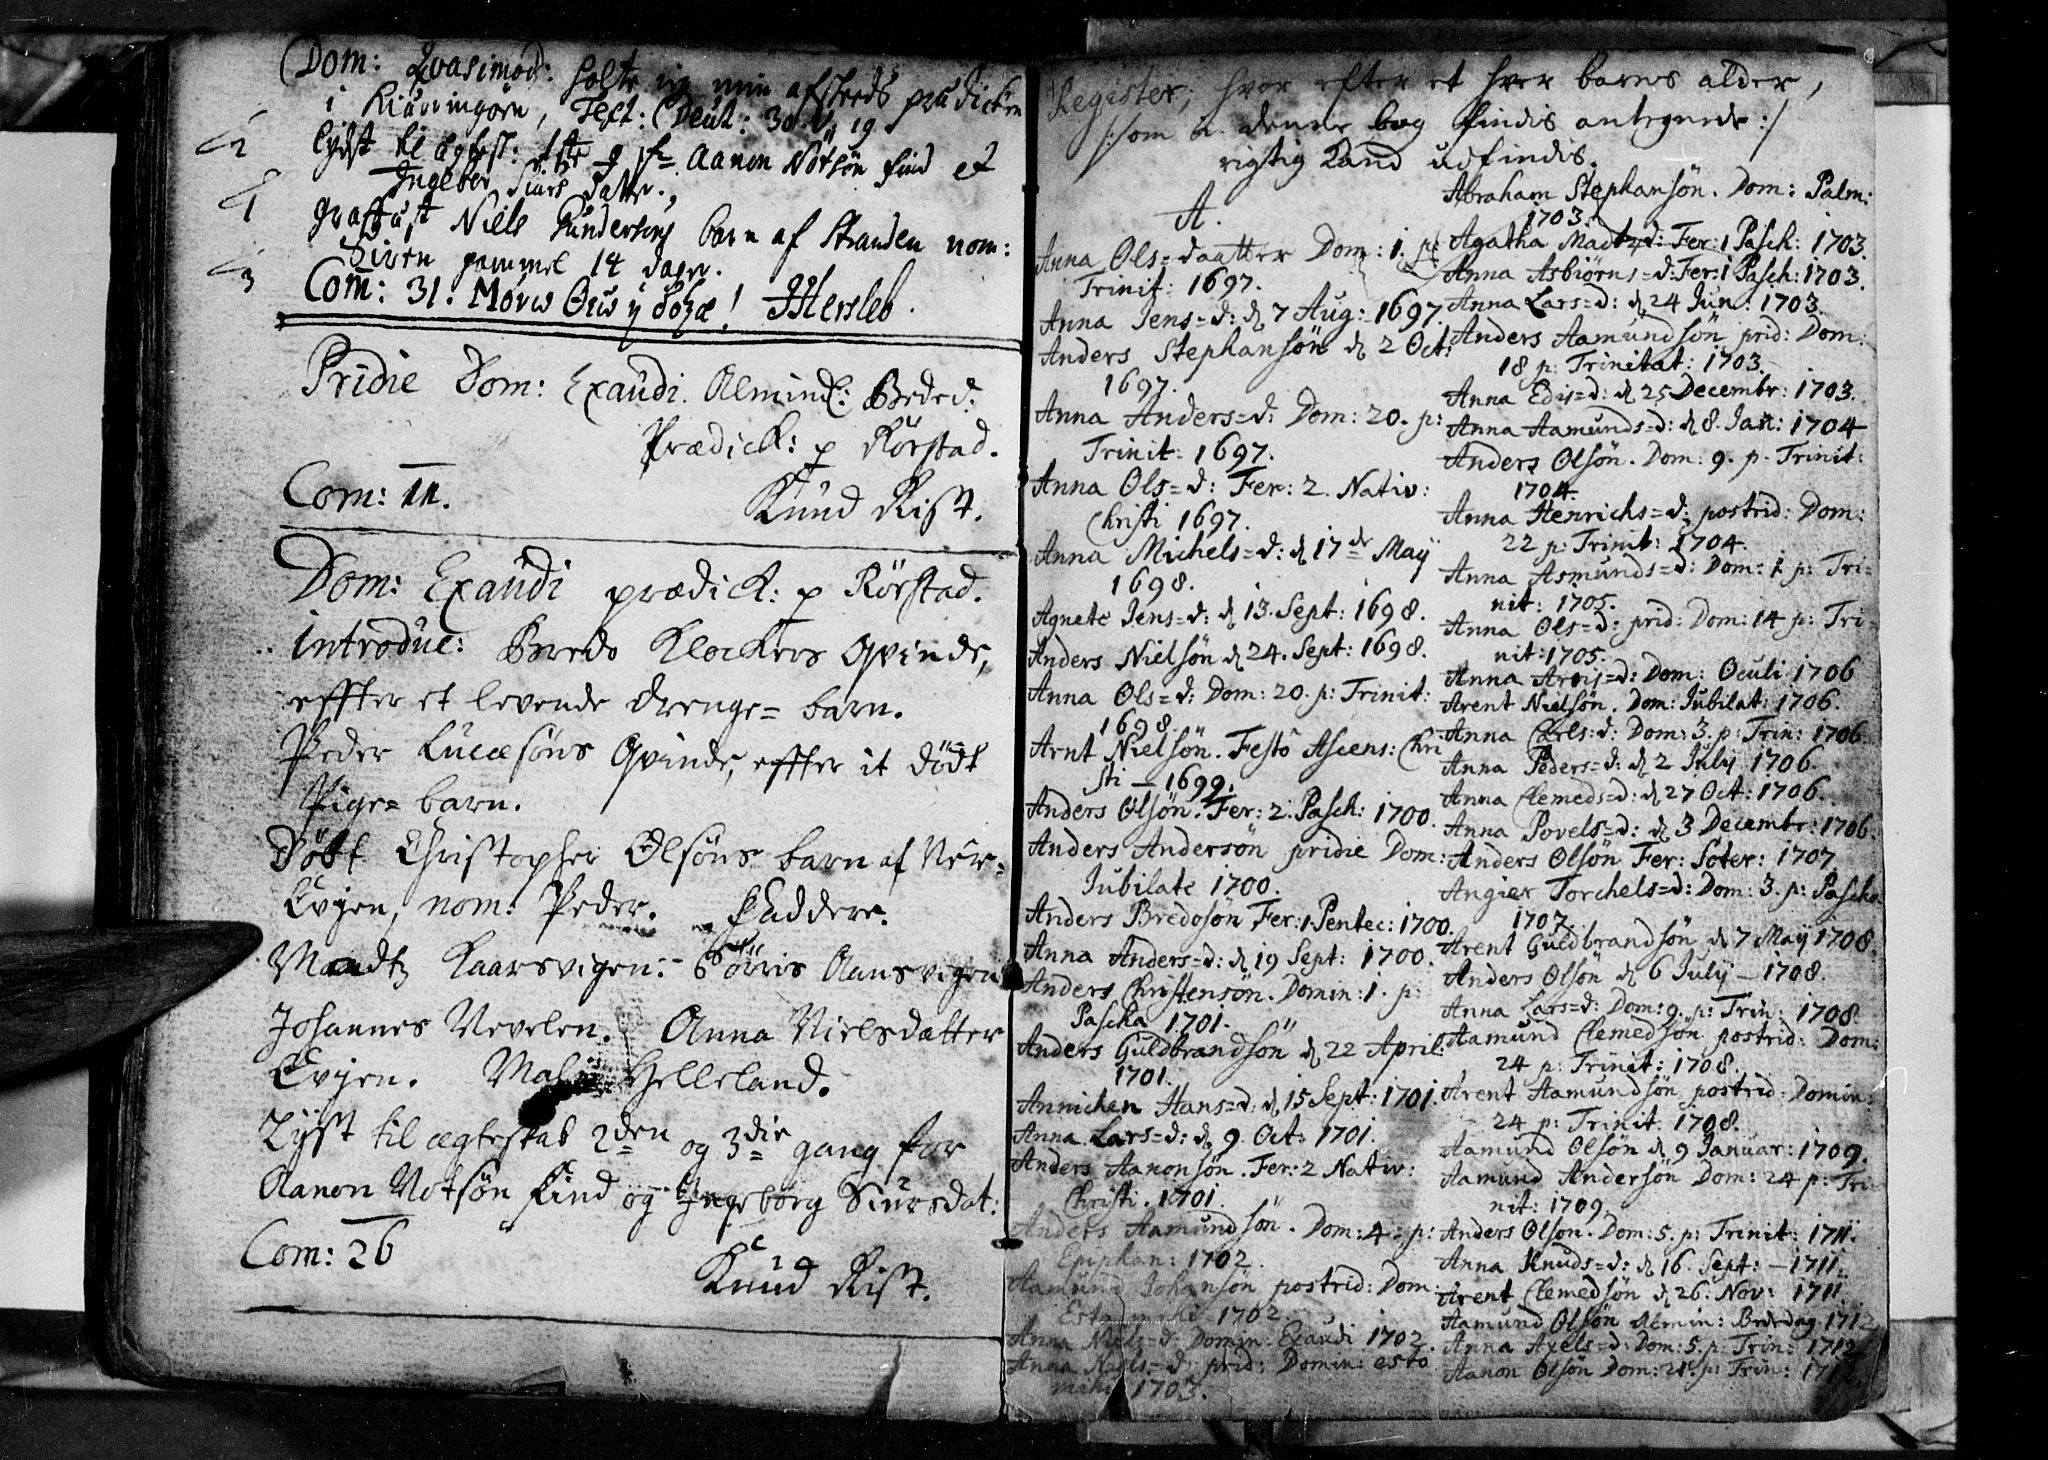 Dom: Qvasimod: holte jeg min afskeeds prædicken
i Kiærringøen, Text: Deut: 30. v. 19.
Lyst til egtesk: 1ste g. f= Aanon Notsøn find et
Ingebor Siurs datter.
Graffæst Niels Gundersøns barn af Stranden nom:
Siren gammel 14 dager.
Com: 31. Hersleb.
Pridie Dom: Exaudi. Almind: Beded:
Prædick: p Rörstad.
Com: 11. Knud Rist.
Dom: Exaudi prædick: p Rörstad.
Introduc: Bredo Klockers Qvinde,
effter et levende drenge= barn.
Peder Lucæsöns Qvinde, effter it dödt
Pige= barn.
Döbt Christopher Olsöns barn af Nör=
Evjen, nom: Peder. Faddere.
Madtz Kaarsvigen: Aansvigen
Johannes Nevelen. Anna Nielsdatter
Evjen. Helleland.
Lyst til ægteskab 2den og 3die gang for
Aanon Notsön find og Ingeborg Siursdat:
Com: 26
Knud Rist.
Register, hvor efter et hver barns alder,
/:som i denne bog findis antegnede:/
rigtig kand udfindis.
A.
Anna Ols=daatter Dom: 1. p:
Trinit: 1697.
Anna Jens=d: d 7 Aug: 1697.
Anders Stephansön d 2 Oct:
1697.
Anna Anders=d: Dom: 20. p:
Trinit: 1697.
Anna Ols=d: Fer: 2. Nativ:
Christi 1697.
Anna Michels=d: d 17de May
1698.
Agnete Jens=d: d 13. Sept: 1698.
Anders Nielsön d 24. Sept: 1698.
Anna Ols=d: Dom: 20. p: Trinit:
1698.
Arnt Nielsön. Festo Ascens: Chri
sti – 1699.
Anders Olsön. Fer: 2. Pasch: 1700.
Anders Andersön pridie Dom:
Jubilate 1700.
Anders Bredosön Fer: 1. Pentec: 1700.
Anna Anders=d: d 19 Sept: 1700.
Anders Christensön. Domin: 1. p:
Pascha 1701.
Anders Guldbrandsön d 22 April:
1701.
Annichen Hans=d: d 15 Sept: 1701.
Anna Lars=d: d 9. Oct: 1701.
Anders Aanonsön. Fer: 2 Nativ:
Christi. 1701.
Anders Aamundsön. Dom: 4 p:
Epiphan: 1702.
Aamund Johansön postrid: Dom:
1702.
Anna Niels=d: Domin. Exaudi 1702.
Anna Niels=d: prid: Domin: esto
mihi 1703.
Abraham Stephansön. Dom: Palm:
1703.
Agatha Madtz=d: Fer: 1 Pasch: 1703.
Anna Asbiörns=d: Fer: 1 Pasch: 1703.
Anna Lars=d: d 24 Jun: 1703.
Anders Aamundsön prid: Dom:
18 p: Trinitat: 1703.
Anna Edis=d: d 25 Decembr: 1703.
Anna Aamunds=d: d 8. Jan: 1704
Anders Olsön. Dom: 9. p. Trinit:
1704.
Anna Henrichs=d: postrid: Dom:
22 p: Trinit: 1704.
Anna Asmunds=d: Dom: 1 p: Tri=
nit: 1705.
Anna Ols=d: prid: Dom: 14 p: Tri=
nit: 1705.
Anna Arij=d: Dom: Oculi 1706
Arent Nielsön. Dom: Jubilat: 1706.
Anna Carls=d: Dom: 3. p: Trin: 1706.
Anna Peders=d: d 2 July 1706.
Anna Clemeds=d: d 27 Oct: 1706.
Anna Povels=d: d 3 Decembr: 1706.
Anders Olsön Fer: Soter: 1707.
Angier Torchels=d: Dom: 3. p: Pascha
1707.
Arent Guldbrandsön d 7 May 1708.
Anders Olsön d 6 July – 1708.
Anna Lars=d: Dom: 9. p: Trin: 1708.
Aamund Clemedsön postrid: Dom:
24 p: Trinit: 1708.
Arent Aamundsön postrid: Domin:
24 p: Trinit. 1708.
Aamund Olsön d 9 Januar: 1709.
Aamund Andersön Dom: 24 p: Tri
nit: 1709.
Anders Olson. Dom: 5. p: Trinit: 1711.
Anna Knuds=d: d 16. Sept: – 1711.
Arent Clemedsön d 26. Nov: 1711.
Aamund Olsön Almin: Bededag 1712
Anna Axels=d: Dom: 5. p: Trin: 1712.
Aanon Olsön Dom: 21. p: Trin: 1712.